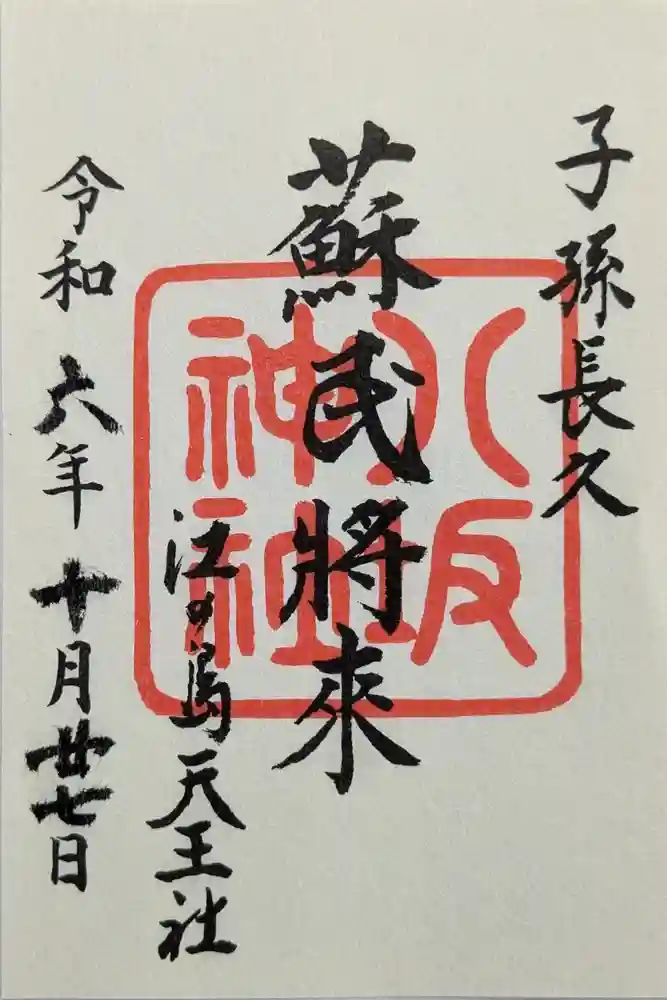 子孫長久
蘇民將來
八坂
神社
江の島天王社
令和六年十月廿七日